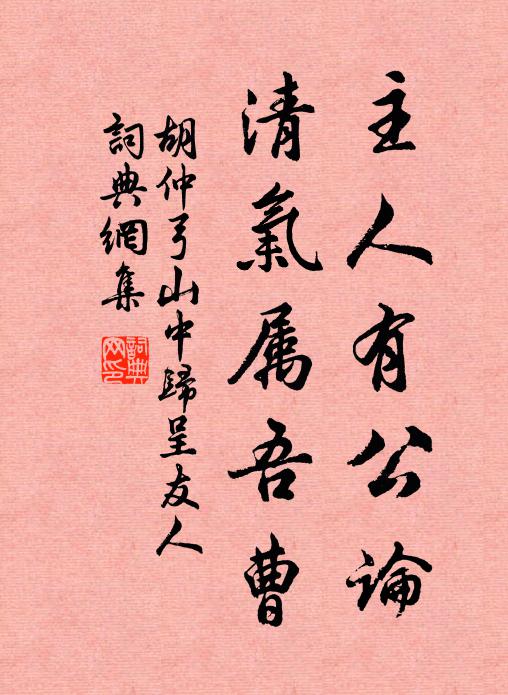 主人有公論
清氣属吾曹
胡仲弓山中歸呈友人
詞典網集
詞典网印